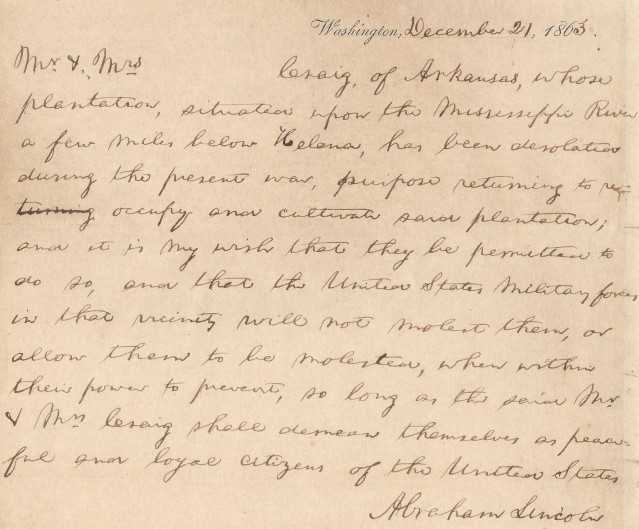 Washington, December 21, 1863.
Mr. & Mrs Craig, of Arkansas, whose
plantation, situated upon the Mississippi River
a few miles below Helena, has been desolated
during the present war, purpose returning to re-
turning occupy and cultivate said plantation;
and it is my wish that they be permitted to
do so, and that the United States Military forces
in that vicinity will not molest them, or
allow them to be molested, when within
their power to prevent, so long as the said Mr
& Mrs Craig shall demean themselves as peace-
ful and loyal citizens of the United States
Abraham Lincoln